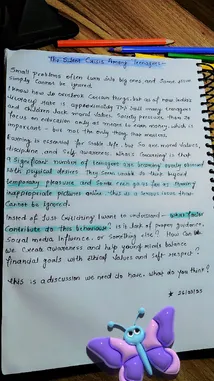 The Silent Crisis Among Teenagers-
Small problems often turn into big ones and some even
simply cannot be ignored.
I know how to overlook certain things, but as of now India's
literacy rate is approximately 77%. Still many teenagers
and children lack moral values. Society pressures them to
focus on education only as means to earn money, which is
important - but not the only thing that matters.
Earning is essential for stable life, but so are moral values,
discipline, and self awareness. What's concerning is that
a significant number of teenagers are becoming overly obsessed
with physical desires. They seem unable to think beyond
temporary pleasures and some even goes far as sharing
inappropriate pictures online. This is a serious issue that
Cannot be ignored.
Instead of just criticizing I want to understand - what factors
contribute to this behaviour - is it lack of proper guidance,
social media influence, or something else? How can
we create awareness and help young minds balance
financial goals with ethical values and self-respect?
This is a discussion we need to have. What do you think?